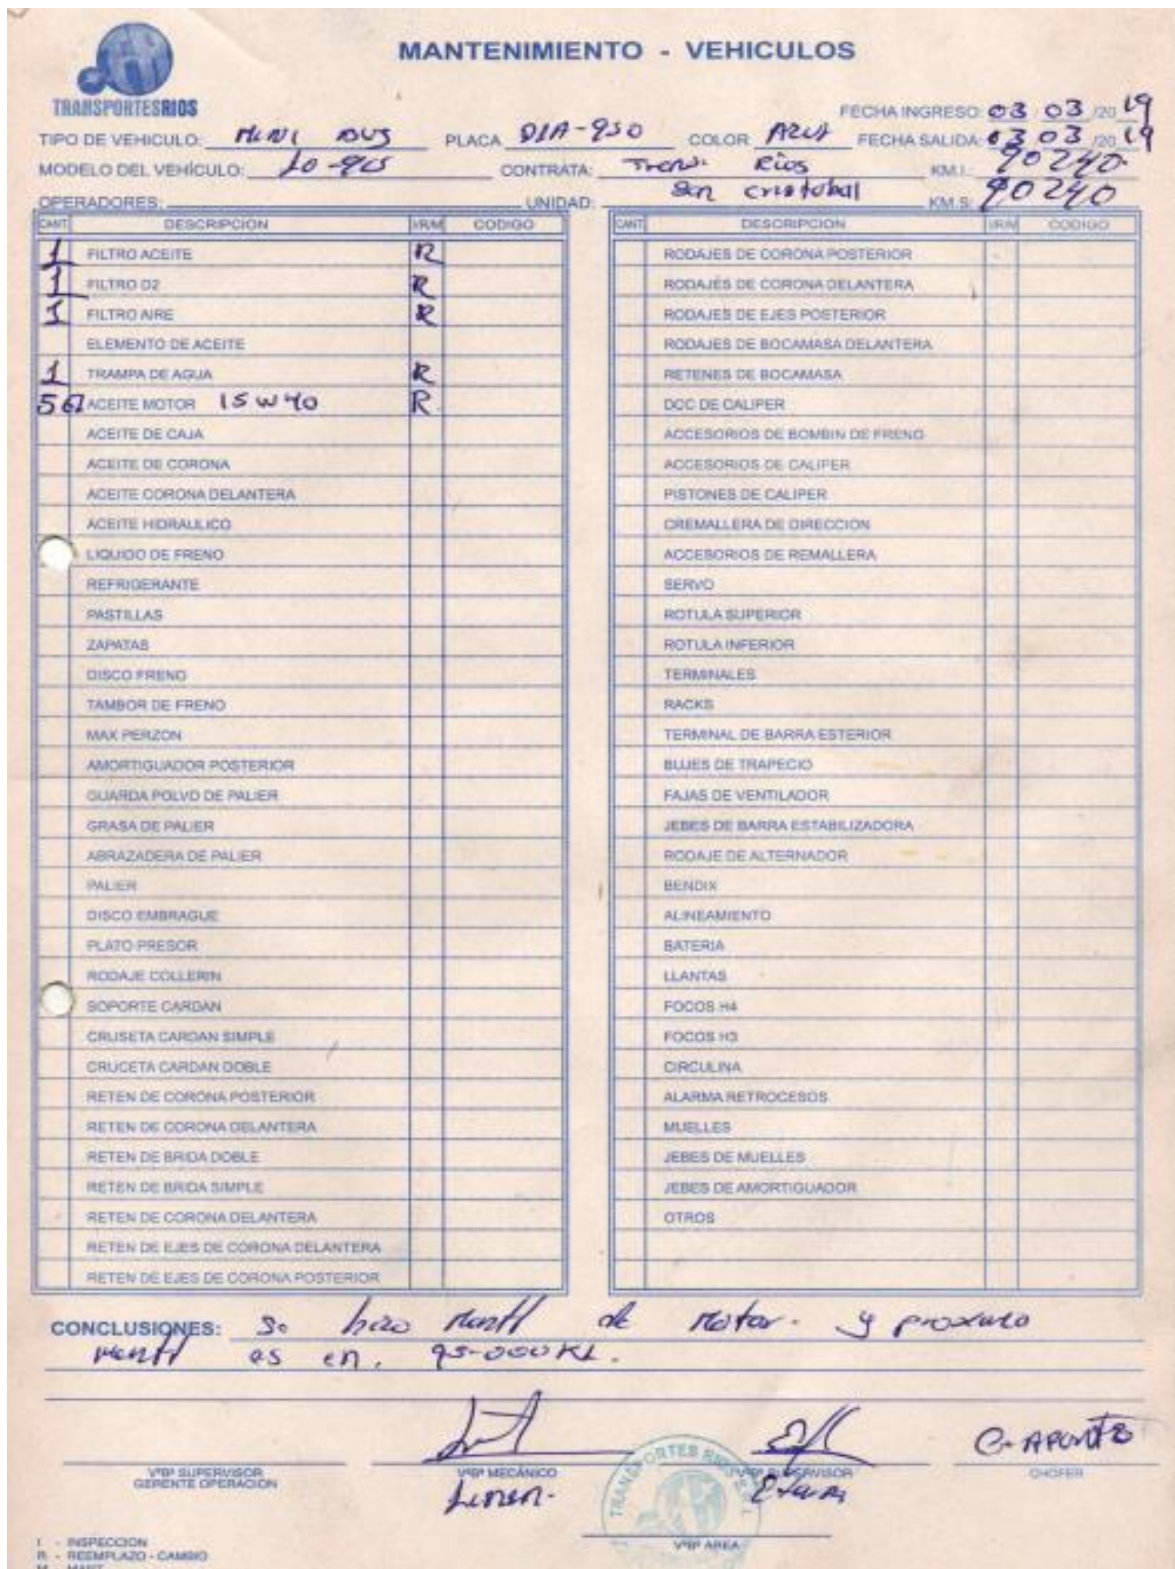 MANTENIMIENTO - VEHICULOS
TRANSPORTESRIOS
FECHA INGRESO: 03 03 /20 19
TIPO DE VEHICULO: MINI BUS PLACA D1A-950 COLOR AZUL FECHA SALIDA: 03 03 /20 19
MODELO DEL VEHÍCULO: LO-915 CONTRATA: Trans. Ríos KM.I.: 90240
OPERADORES: UNIDAD: San cristobal KM.S: 90240
CANT. DESCRIPCION I/R/M CODIGO
1 FILTRO ACEITE R
1 FILTRO D2 R
1 FILTRO AIRE R
ELEMENTO DE ACEITE
1 TRAMPA DE AGUA R
5 ACEITE MOTOR 15W40 R
ACEITE DE CAJA
ACEITE DE CORONA
ACEITE CORONA DELANTERA
ACEITE HIDRAULICO
LIQUIDO DE FRENO
REFRIGERANTE
PASTILLAS
ZAPATAS
DISCO FRENO
TAMBOR DE FRENO
MAX PERZON
AMORTIGUADOR POSTERIOR
GUARDA POLVO DE PALIER
GRASA DE PALIER
ABRAZADERA DE PALIER
PALIER
DISCO EMBRAGUE
PLATO PRESOR
RODAJE COLLERIN
SOPORTE CARDAN
CRUSETA CARDAN SIMPLE
CRUCETA CARDAN DOBLE
RETEN DE CORONA POSTERIOR
RETEN DE CORONA DELANTERA
RETEN DE BRIDA DOBLE
RETEN DE BRIDA SIMPLE
RETEN DE CORONA DELANTERA
RETEN DE EJES DE CORONA DELANTERA
RETEN DE EJES DE CORONA POSTERIOR
CANT. DESCRIPCION I/R/M CODIGO
RODAJES DE CORONA POSTERIOR
RODAJES DE CORONA DELANTERA
RODAJES DE EJES POSTERIOR
RODAJES DE BOCAMASA DELANTERA
RETENES DE BOCAMASA
DCC DE CALIPER
ACCESORIOS DE BOMBIN DE FRENO
ACCESORIOS DE CALIPER
PISTONES DE CALIPER
CREMALLERA DE DIRECCION
ACCESORIOS DE REMALLERA
SERVO
ROTULA SUPERIOR
ROTULA INFERIOR
TERMINALES
RACKS
TERMINAL DE BARRA ESTERIOR
BUJES DE TRAPECIO
FAJAS DE VENTILADOR
JEBES DE BARRA ESTABILIZADORA
RODAJE DE ALTERNADOR
BENDIX
ALINEAMIENTO
BATERIA
LLANTAS
FOCOS H4
FOCOS H3
CIRCULINA
ALARMA RETROCESOS
MUELLES
JEBES DE MUELLES
JEBES DE AMORTIGUADOR
OTROS
CONCLUSIONES: Se hizo Mantt de Motor. y proximo
Mantt es en. 95-000 KL.
C. APONTE
VºBº SUPERVISOR
GERENTE OPERACION
VºBº MECÁNICO
VºBº SUPERVISOR
CHOFER
VºBº AREA
I - INSPECCION
R - REEMPLAZO - CAMBIO
M - MANT